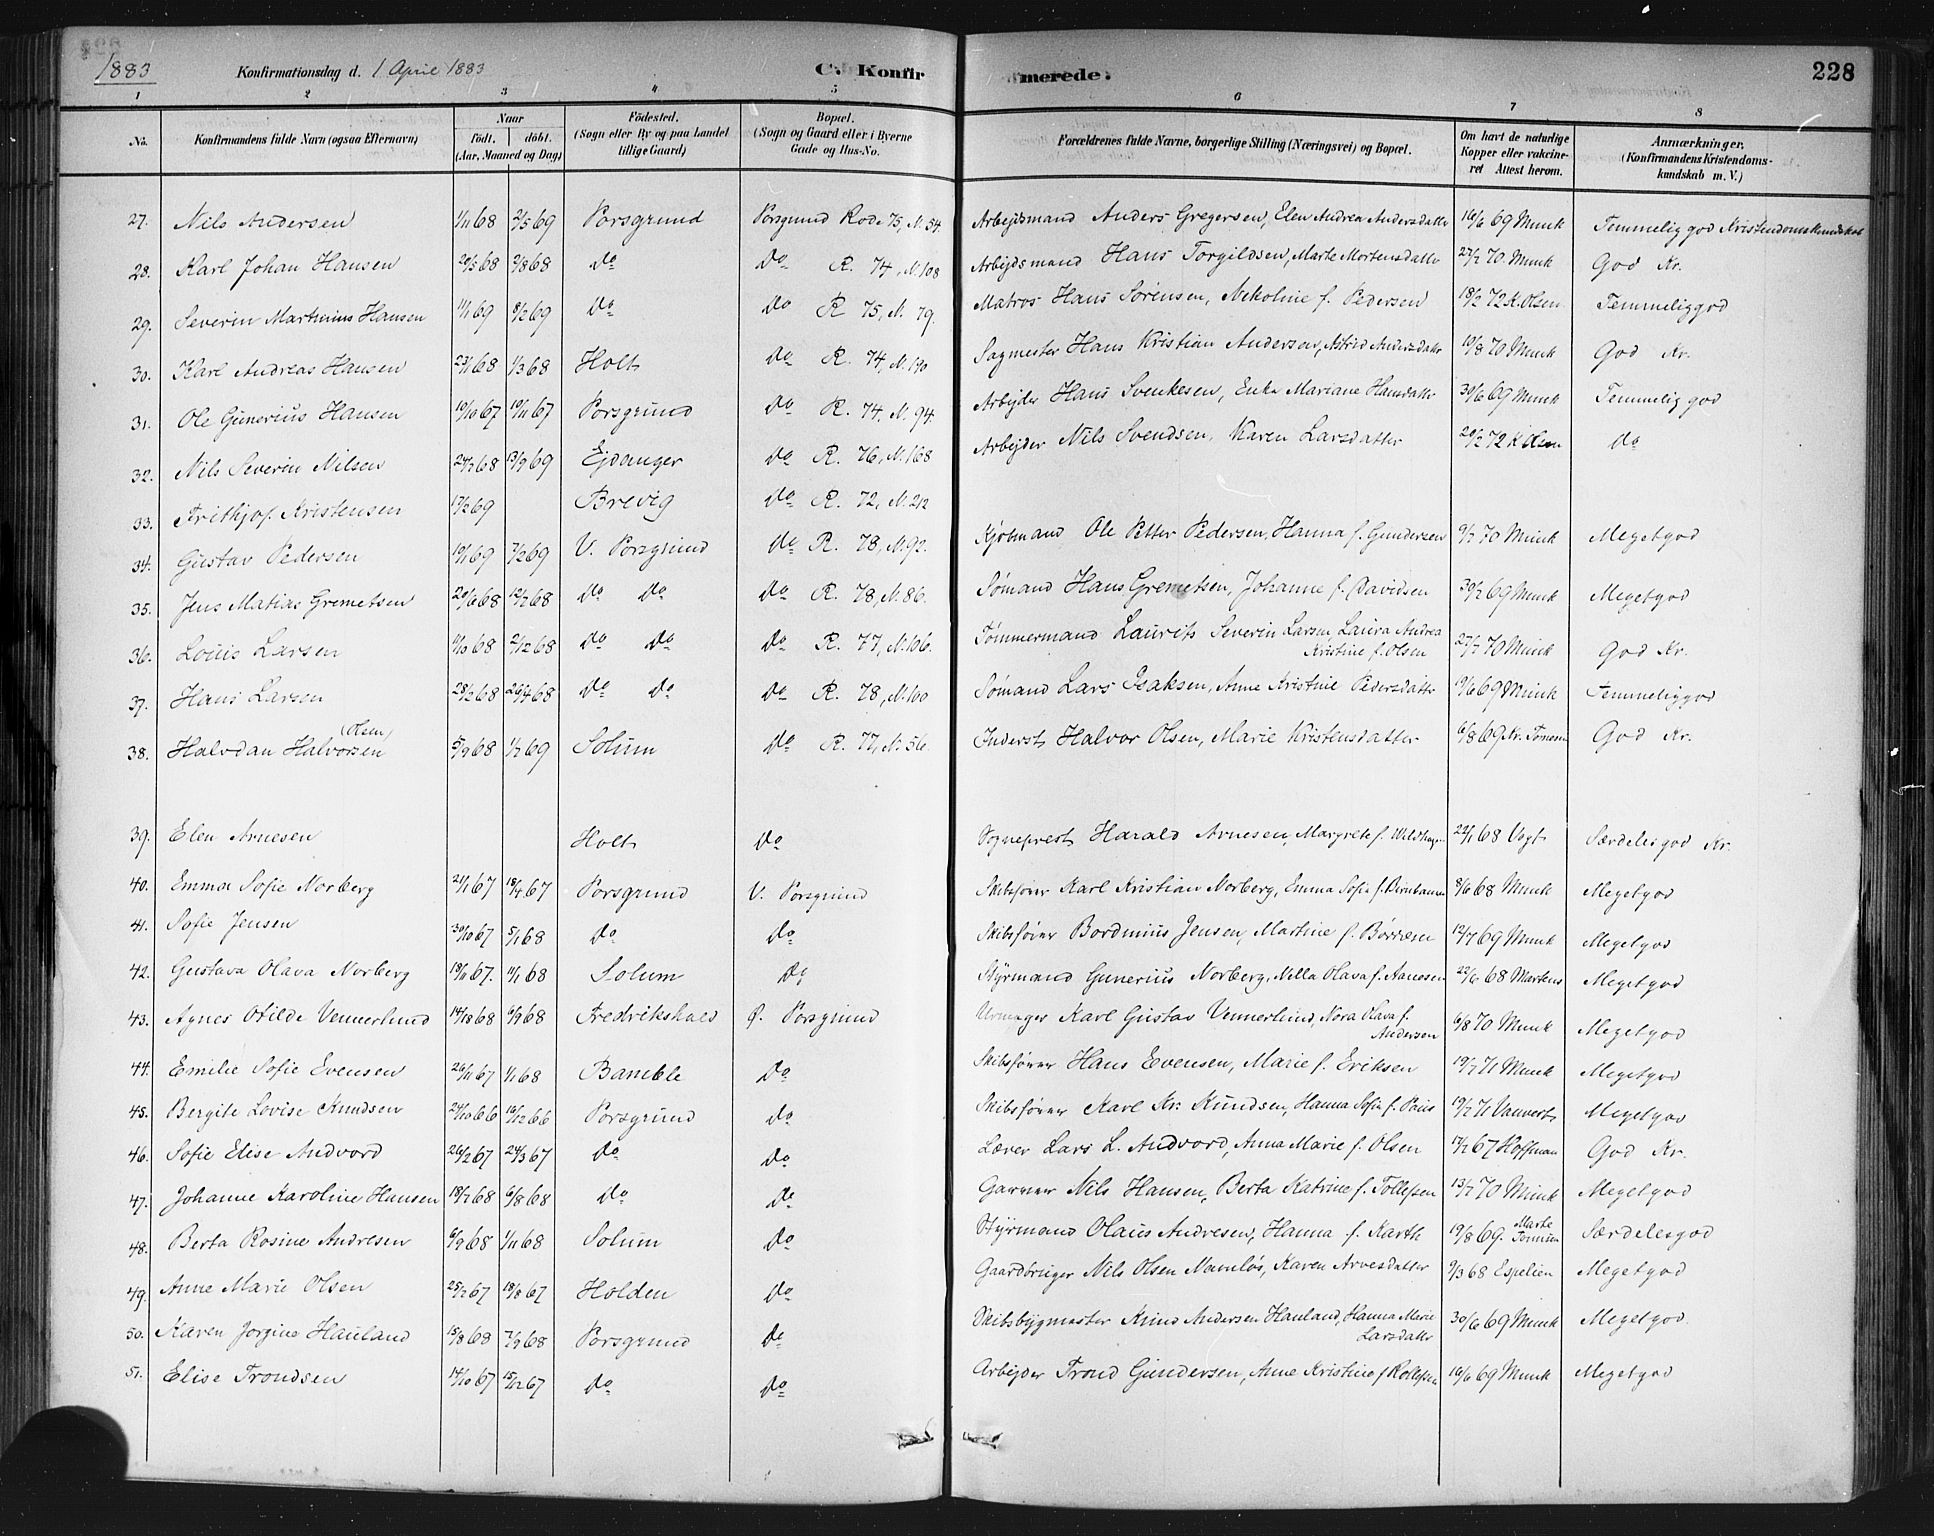 1883 Konfirmationsdag d. 1 April 1883 C. Konfir merede. 228
1 2 3 4 5 6 7 8
No. Konfirmandens fulde Navn (ogsaa Efternavn) Naar født, døbt. (Aar, Maaned og Dag) Fødested. (Sogn eller By og paa Landet tillige Gaard) Bopæl. (Sogn og Gaard eller i Byerne Gade og Hus-No. Forældrenes fulde Navne, borgerlige Stilling (Næringsvei) og Bopæl. Om havt de naturlige Kopper eller vakcineret Attest herom. Anmærkninger. (Konfirmandens Kristendomskundskab m. V.)
27. Nils Andersen 1/11 68 2/5 69 Porsgrund Porsgrund Rode 75, N. 54 Arbejdsmand Anders Gregersen, Elen Andrea Andersdatter 16/6 69 Munk Temmelig god Kristendomskundskab
28. Karl Johan Hansen 29/5 68 2/8 68 do do R. 74, N. 108 Arbejdsmand Hans Torgildsen, Marte Mortensdattr 27/7 70 Munk God Kr.
29. Severin Martinius Hansen 11/1 69 8/2 69 do do R 75, N. 79. Matros Hans Sørensen, Nekoline f. Pedersen 18/2 72 K. Olsen Temmeliggod
30. Karl Andreas Hansen 23/1 68 1/3 68 Holt do R. 74, N. 190 Sagmester Hans Kristian Andersen, Astrid Andersdattr 10/8 70 Munk God Kr.
31. Ole Gunerius Hansen 10/10 67 10/11 67 Porsgrund do R. 74, N. 94. Arbejder Hans Svenkesen, Enke Mariane Hansdattr 30/6 69 Munk Temmelig god
32. Nils Severin Nilsen 24/3 68 13/9 69 Ejdanger do R. 76, N. 168 Arbejder Nils Svendsen, Karen Larsdatter 20/2 72 K Olsen do
33. Frithjof Kristensen 17/2 69 Brevig do R. 72, N. 212
34. Gustav Pedersen 10/1 69 7/2 69 V. Porsgrund do R. 78, N. 92. Kjøbmand Ole Petter Pedersen, Hanna f. Gundersen 9/7 70 Munk Megetgod
35. Jens Matias Gremetsen 20/6 68 12/7 68 do do do R. 78, N. 86. Sømand Hans Gremetsen, Johanne f. Davidsen 30/7 69 Munk Megetgod
36. Louis Larsen 11/10 68 2/12 68 do do do R. 77, N. 106. Tømmermand Laurits Severin Larsen, Laura Andrea Kristine f. Olsen 27/7 70 Munk God Kr.
37. Hans Larsen 28/2 68 26/4 68 do do do R. 78, N. 100 Sømand Lars Isaksen, Anne Kristine Pedersdattr 19/6 69 Munk Temmeliggod
38. Halvdan Halvorsen (Olsen) 5/9 68 1/2 69 Solum do R. 77, N. 56. Inderst Halvor Olsen, Marie Kristensdatter 6/8 69 Kr. God Kr.
39. Elen Arnesen Holt do Sogneprest Harald Arnesen, Margrete f. 22/1 68 Vogt Særdelesgod Kr.
40. Emma Sofie Norberg 21/1 67 18/4 67 Porsgrund V. Porsgrund Skibsfører Karl Kristian Norberg, Emma Sofie f. Birnbaum 8/6 68 Munk Megetgod
41. Sofie Jensen 30/10 67 5/1 68 do do Skibsfører Bordinius Jensen, Martine f. Børresen 12/7 69 Munk Megetgod
42. Gustava Olava Norberg 18/11 67. 11/1 68 Solum do Styrmand Gunerius Norberg, Nilla Olava f. Aanesen 22/6 68 Martens Megetgod
43. Agnes Otilde Vennerlund 14/8 68 6/9 68 Fredrikshald Ø. Porsgrund Urmager Karl Gustav Vennerlund, Nora Olava f. Andersen 6/8 70 Munk Megetgod
44. Emilie Sofie Evensen 26/11 67 1/1 68 Bamble do Skibsfører Hans Evensen, Marie f. Eriksen 19/7 71 Munk Megetgod
45. Bergite Lovise Knudsen 24/10 66 16/12 66 Porsgrund do Skibsfører Karl Kr. Knudsen, Hanna Sofie f. Paus 19/7 71 Vauvert Megetgod
46. Sofie Elise Andvord 26/2 67 24/3 67 do do Lærer Lars L. Andvord, Anna Marie f. Olsen 17/7 67 Hoffman God Kr.
47. Johanne Karoline Hansen 18/7 68 6/8 68 do do Garver Nils Hansen, Berta Katrine f. Tollefsen 13/7 70 Munk Megetgod
48. Berta Rosine Andresen 6/9 68 1/11 68 Solum do Styrmand Olaus Andresen, Hanna f. Karth 19/8 69 Marte Særdelesgod
49. Anne Marie Olsen 25/7 67 18/8 67 Holden do Gaardbruger Nils Olsen Namløs, Karen Arvesdatter 9/3 68 Espelien Megetgod
50. Karen Jorgine Hauland 15/8 68 7/9 68 Porsgrund do Skibsbygmester Knud Andersen Hauland, Hanna Marie Larsdattr 30/6 69 Munk Megetgod.
51. Elise Trondsen 14/10 67 15/12 67 do do Arbejder Trond Gundersen, Anne Kristine f Rollefsen 16/6 69 Munk Megetgod